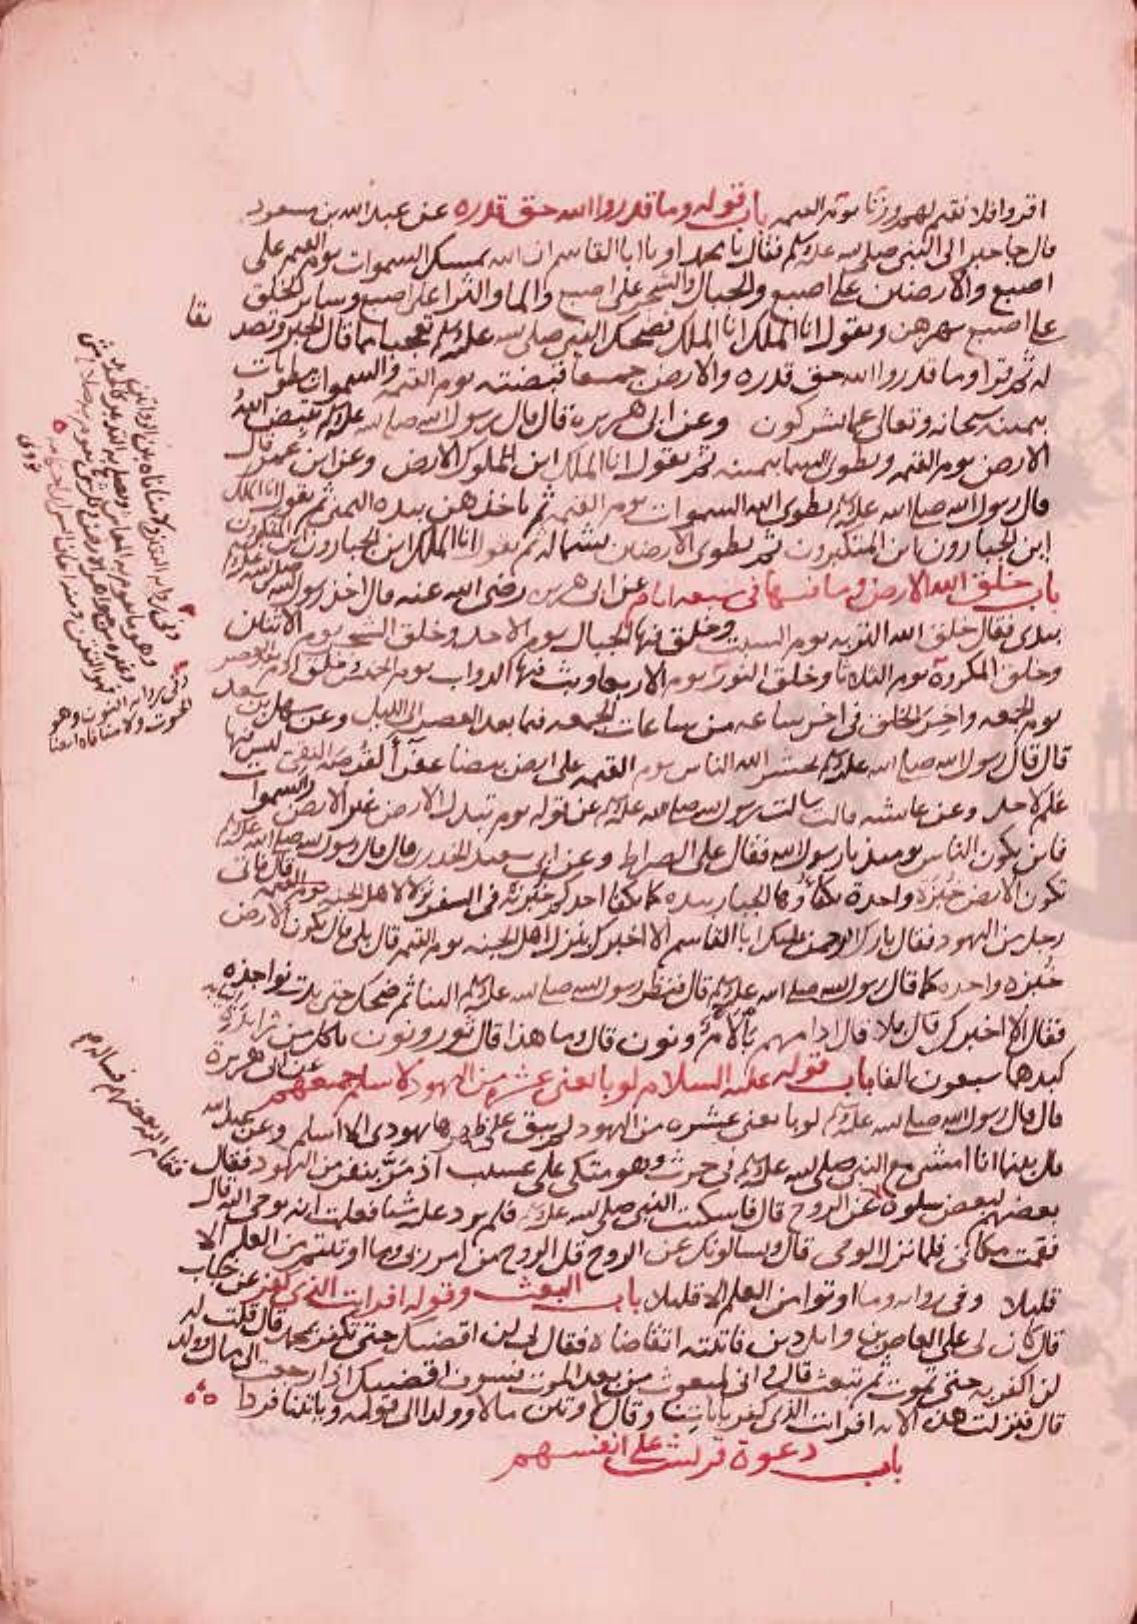 اقروا فلا نقيم لهم وزنا يوم القيمه باب قوله وما قدروا الله حق قدره عن عبد الله بن مسعود
قال جا حبر الى النبي صلى الله عليه وسلم فقال يا محمد او يا ابا القاسم ان الله يمسك السموات يوم القيمه على
اصبع والارضين على اصبع والجبال والشجر على اصبع والما والثرا على اصبع وساير الخلق
على اصبع ثم يهزهن ويقول انا الملك انا الملك فضحك النبي صلى الله عليه وسلم تعجبا مما قال الحبر وتصديقا
له ثم قرا وما قدروا الله حق قدره والارض جميعا قبضته يوم القيمه والسموات مطويات
بيمينه سبحانه وتعالى عما يشركون وعن ابى هريره قال قال رسول الله صلى الله عليه وسلم يقبض الله
الارض يوم القيمه ويطوى السما بيمينه ثم يقول انا الملك اين الملوك الارض وعن ابن عمر قال
قال رسول الله صلى الله عليه وسلم يطوى الله السموات يوم القيمه ثم ياخذهن بيده اليمنى ثم يقول انا الملك
اين الجبارون اين المتكبرون ثم يطوى الارضين بشماله ثم يقول انا الملك اين الجبارون اين المتكبرون
باب خلق الله الارض وما فيها فى سبعه ايام عن ابى هريره رضى الله عنه قال اخذ رسول الله صلى الله عليه وسلم
بيدى فقال خلق الله التربه يوم السبت وخلق فيها الجبال يوم الاحد وخلق الشجر يوم الاثنين
وخلق المكروه يوم الثلاثا وخلق النور يوم الاربعا وبث فيها الدواب يوم الخميس وخلق ادم بعد العصر
يوم الجمعه واخر الخلق فى اخر ساعه من ساعات الجمعه فيما بعد العصر الى الليل وعن سهل بن سعد
قال قال رسول الله صلى الله عليه وسلم يحشر الله الناس يوم القيمه على ارض بيضا عفرا كقرصه النقى ليس فيها
علم لاحد وعن عايشه قالت سالت رسول الله صلى الله عليه وسلم عن قوله يوم تبدل الارض غير الارض والسموات
فاين يكون الناس يوميذ يا رسول الله فقال على الصراط وعن ابى سعيد الخدرى قال قال رسول الله صلى الله عليه وسلم
تكون الارض خبزه واحدة يكفأوها الجبار بيده كما يكفا احدكم خبزته فى السفر نزلا لاهل الجنه يوم القيمه قال فاتى
رجل من اليهود فقال بارك الرحمن عليك ابا القاسم الا اخبرك بنزل اهل الجنه يوم القيمه قال بلى قال تكون الارض
خبزه واحده كما قال رسول الله صلى الله عليه وسلم قال فنظر رسول الله صلى الله عليه وسلم الينا ثم ضحك حتى بدت نواجذه
فقال الا اخبرك قال بلا قال ادامهم بالام ونون قال وما هذا قال ثور ونون ياكل من زايده
كبدها سبعون الفا باب قوله عليه السلام لو تابعنى عشره من اليهود لاسلم جميعهم عن ابى هريرة
قال قال رسول الله صلى الله عليه وسلم لو تابعنى عشره من اليهود لم يبق على ظهرها يهودى الا اسلم وعن عبد الله
قال بينما انا امشى مع النبي صلى الله عليه وسلم فى حرث وهو متكى على عسيب اذ مر بنفر من اليهود فقال
بعضهم لبعض سلوه عن الروح قال فاسكت النبي صلى الله عليه وسلم فلم يرد عليه شيا فعلمت انه يوحى اليه قال
فقمت مكانى فلما نزل الوحى قال ويسالونك عن الروح قل الروح من امر ربى وما اوتيتم من العلم الا
قليلا وفى روايه وما اوتوا من العلم الا قليلا باب البعث وقوله افرايت الذى كفر عن خباب
قال كان لى على العاص بن وايل دين فاتيته اتقاضاه فقال لى لن اقضيك حتى تكفر بمحمد قال قلت له
لن اكفر به حتى تموت ثم تبعث قال وانى لمبعوث من بعد الموت فسوف اقضيك اذا رجعت الى مال وولد
قال فنزلت هذه الايه افرايت الذى كفر باياتنا وقال لاوتين مالا وولدا الى قوله وياتينا فردا
باب دعوة قريش على انفسهم
وفى روايه
وفى روايه النون وهو
الحوت ولا منافاه ايضا